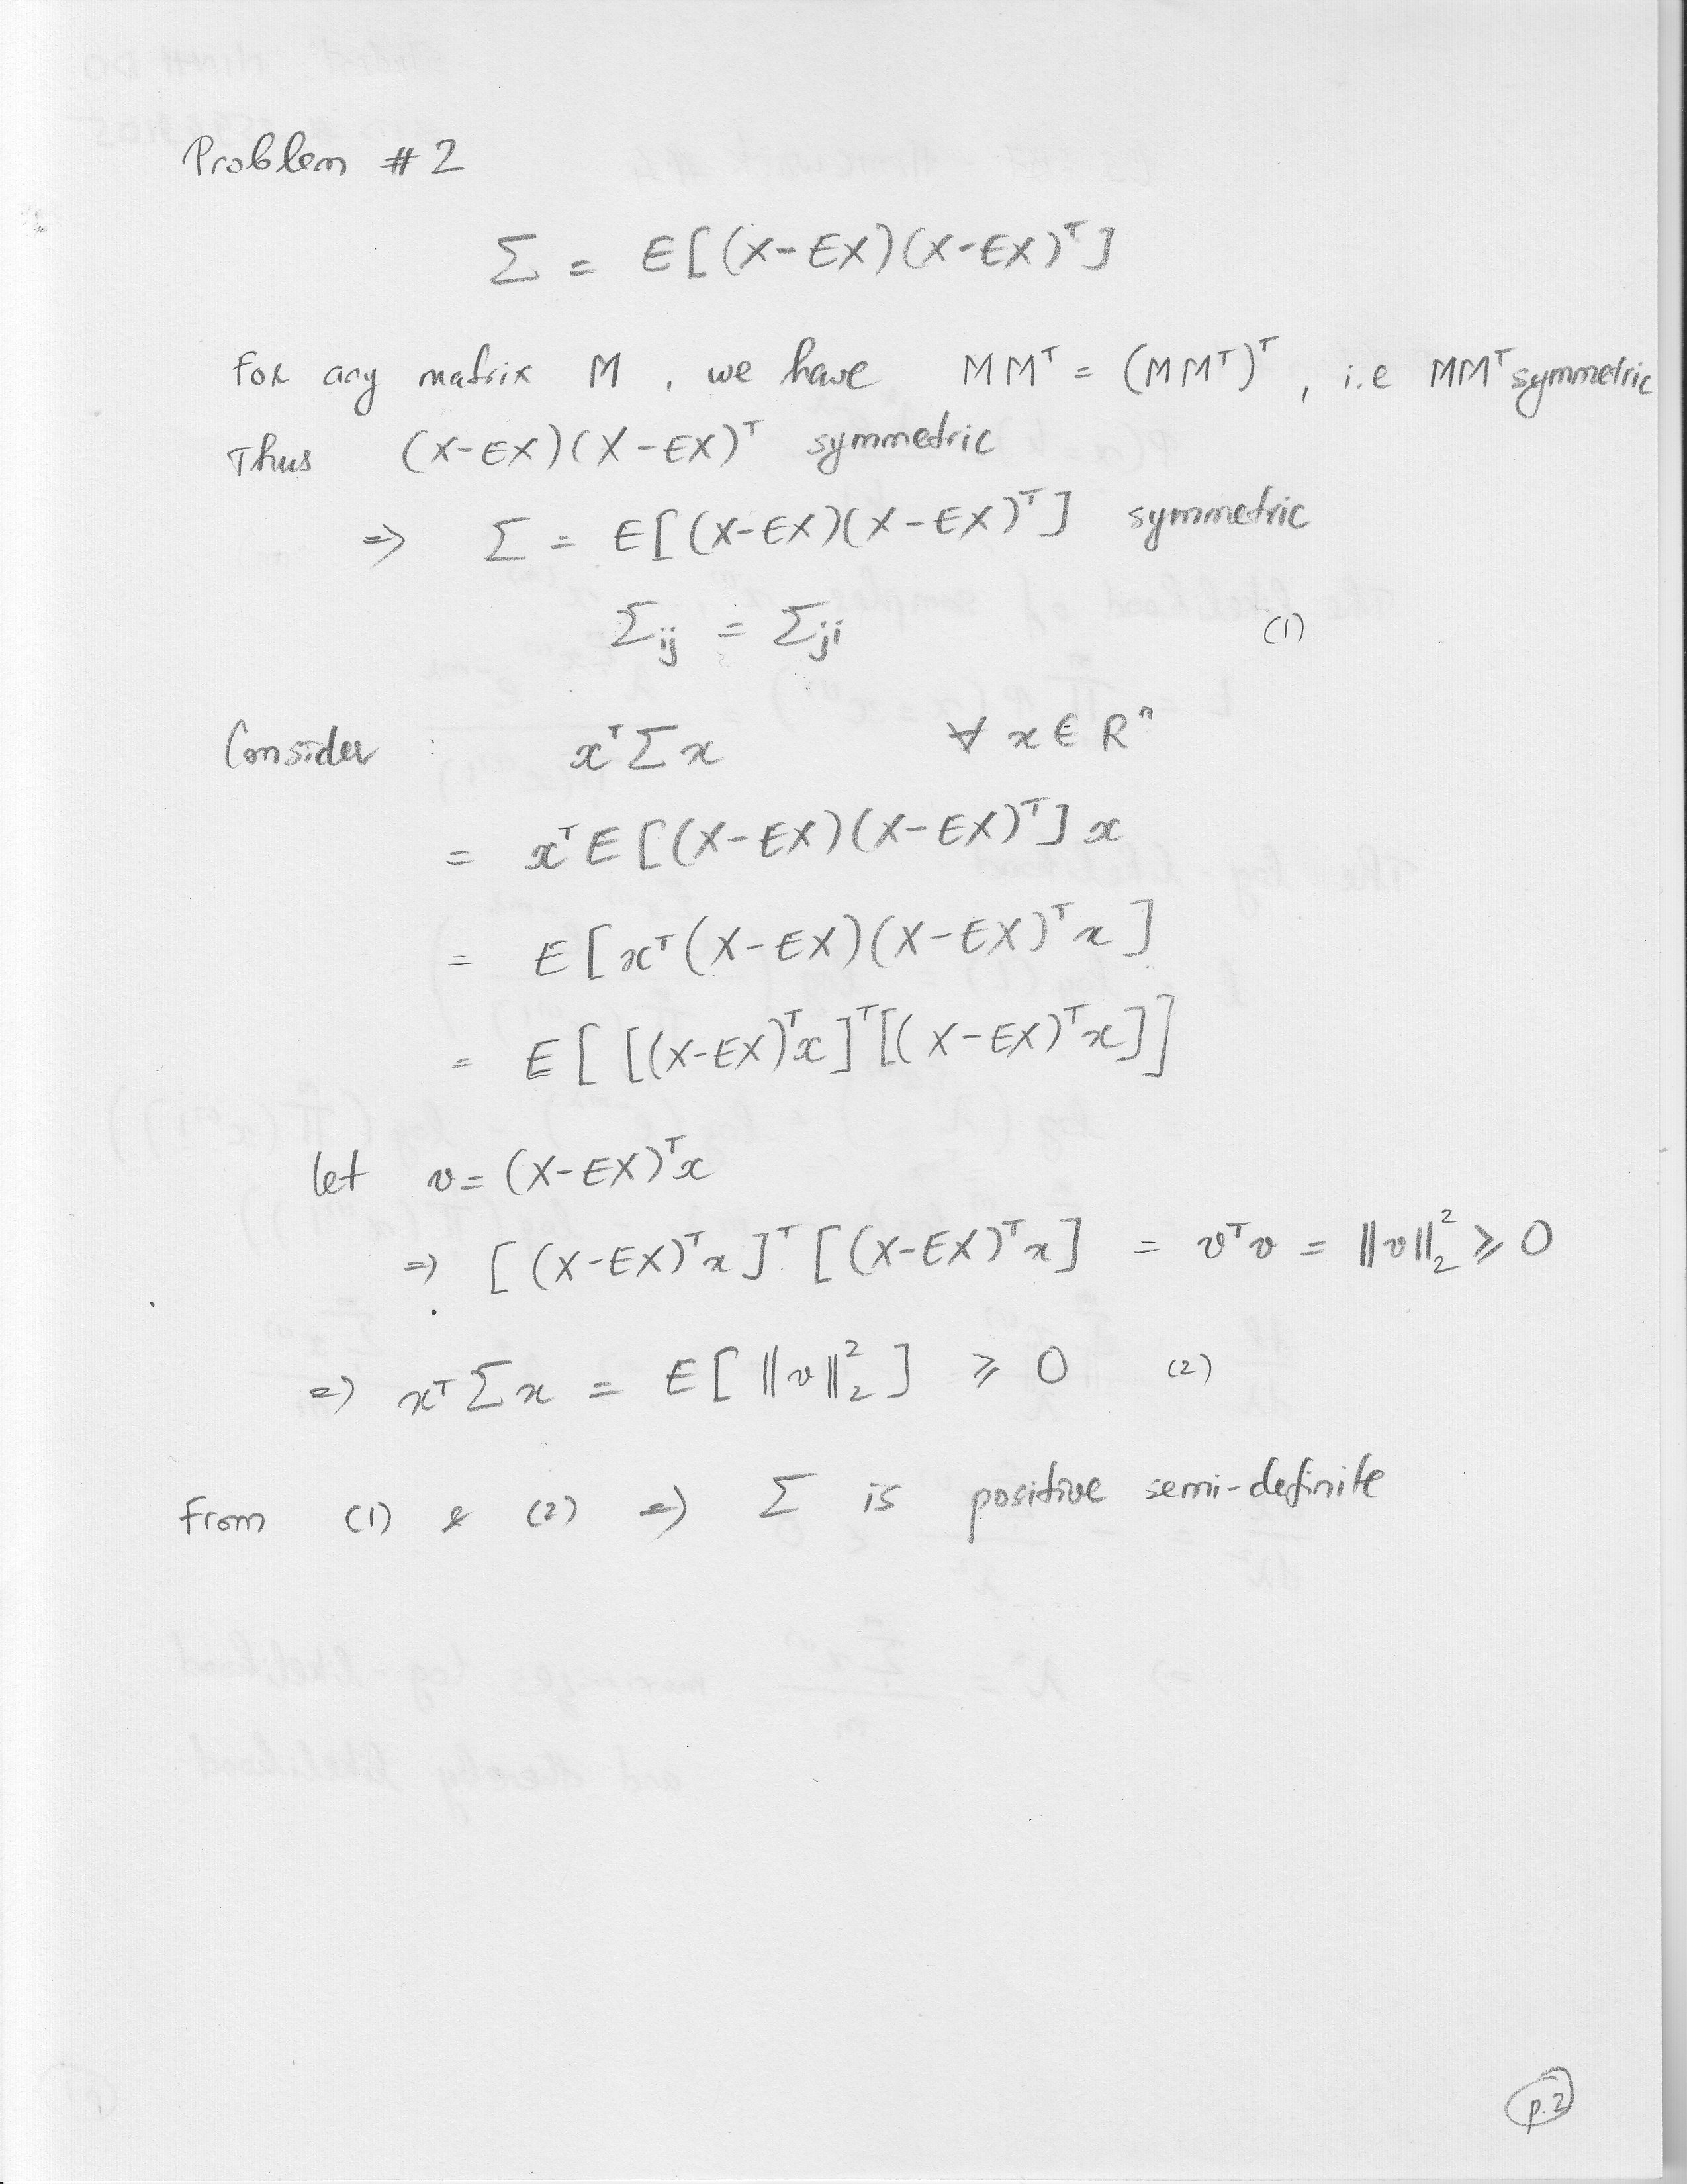 Problem #2
Σ = E[(X-EX)(X-EX)ᵀ]
For any matrix M, we have MMᵀ = (MMᵀ)ᵀ, i.e MMᵀ symmetric
Thus (X-EX)(X-EX)ᵀ symmetric
⇒ Σ = E[(X-EX)(X-EX)ᵀ] symmetric
Σij = Σji (1)
Consider : xᵀΣx ∀ x ∈ Rⁿ
= xᵀE[(X-EX)(X-EX)ᵀ]x
= E[xᵀ(X-EX)(X-EX)ᵀx]
= E[[(X-EX)ᵀx]ᵀ[(X-EX)ᵀx]]
let v = (X-EX)ᵀx
⇒ [(X-EX)ᵀx]ᵀ[(X-EX)ᵀx] = vᵀv = ‖v‖₂² ⩾ 0
⇒ xᵀΣx = E[‖v‖₂²] ⩾ 0 (2)
From (1) & (2) ⇒ Σ is positive semi-definite
p.2